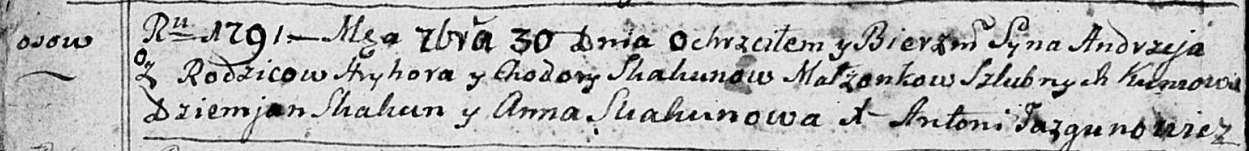 osow
Ru 1791 — Mca 7bra 30 Dnia Ochrzciłem y Bierzm Syna Andrzeja
Z Rodzicow Hryhora y Chodory Skakunow Małzonkow Szlubnych Kumowie
Dziemjan Skakun y Anna Skakunowa A Antoni Jazgunowicz